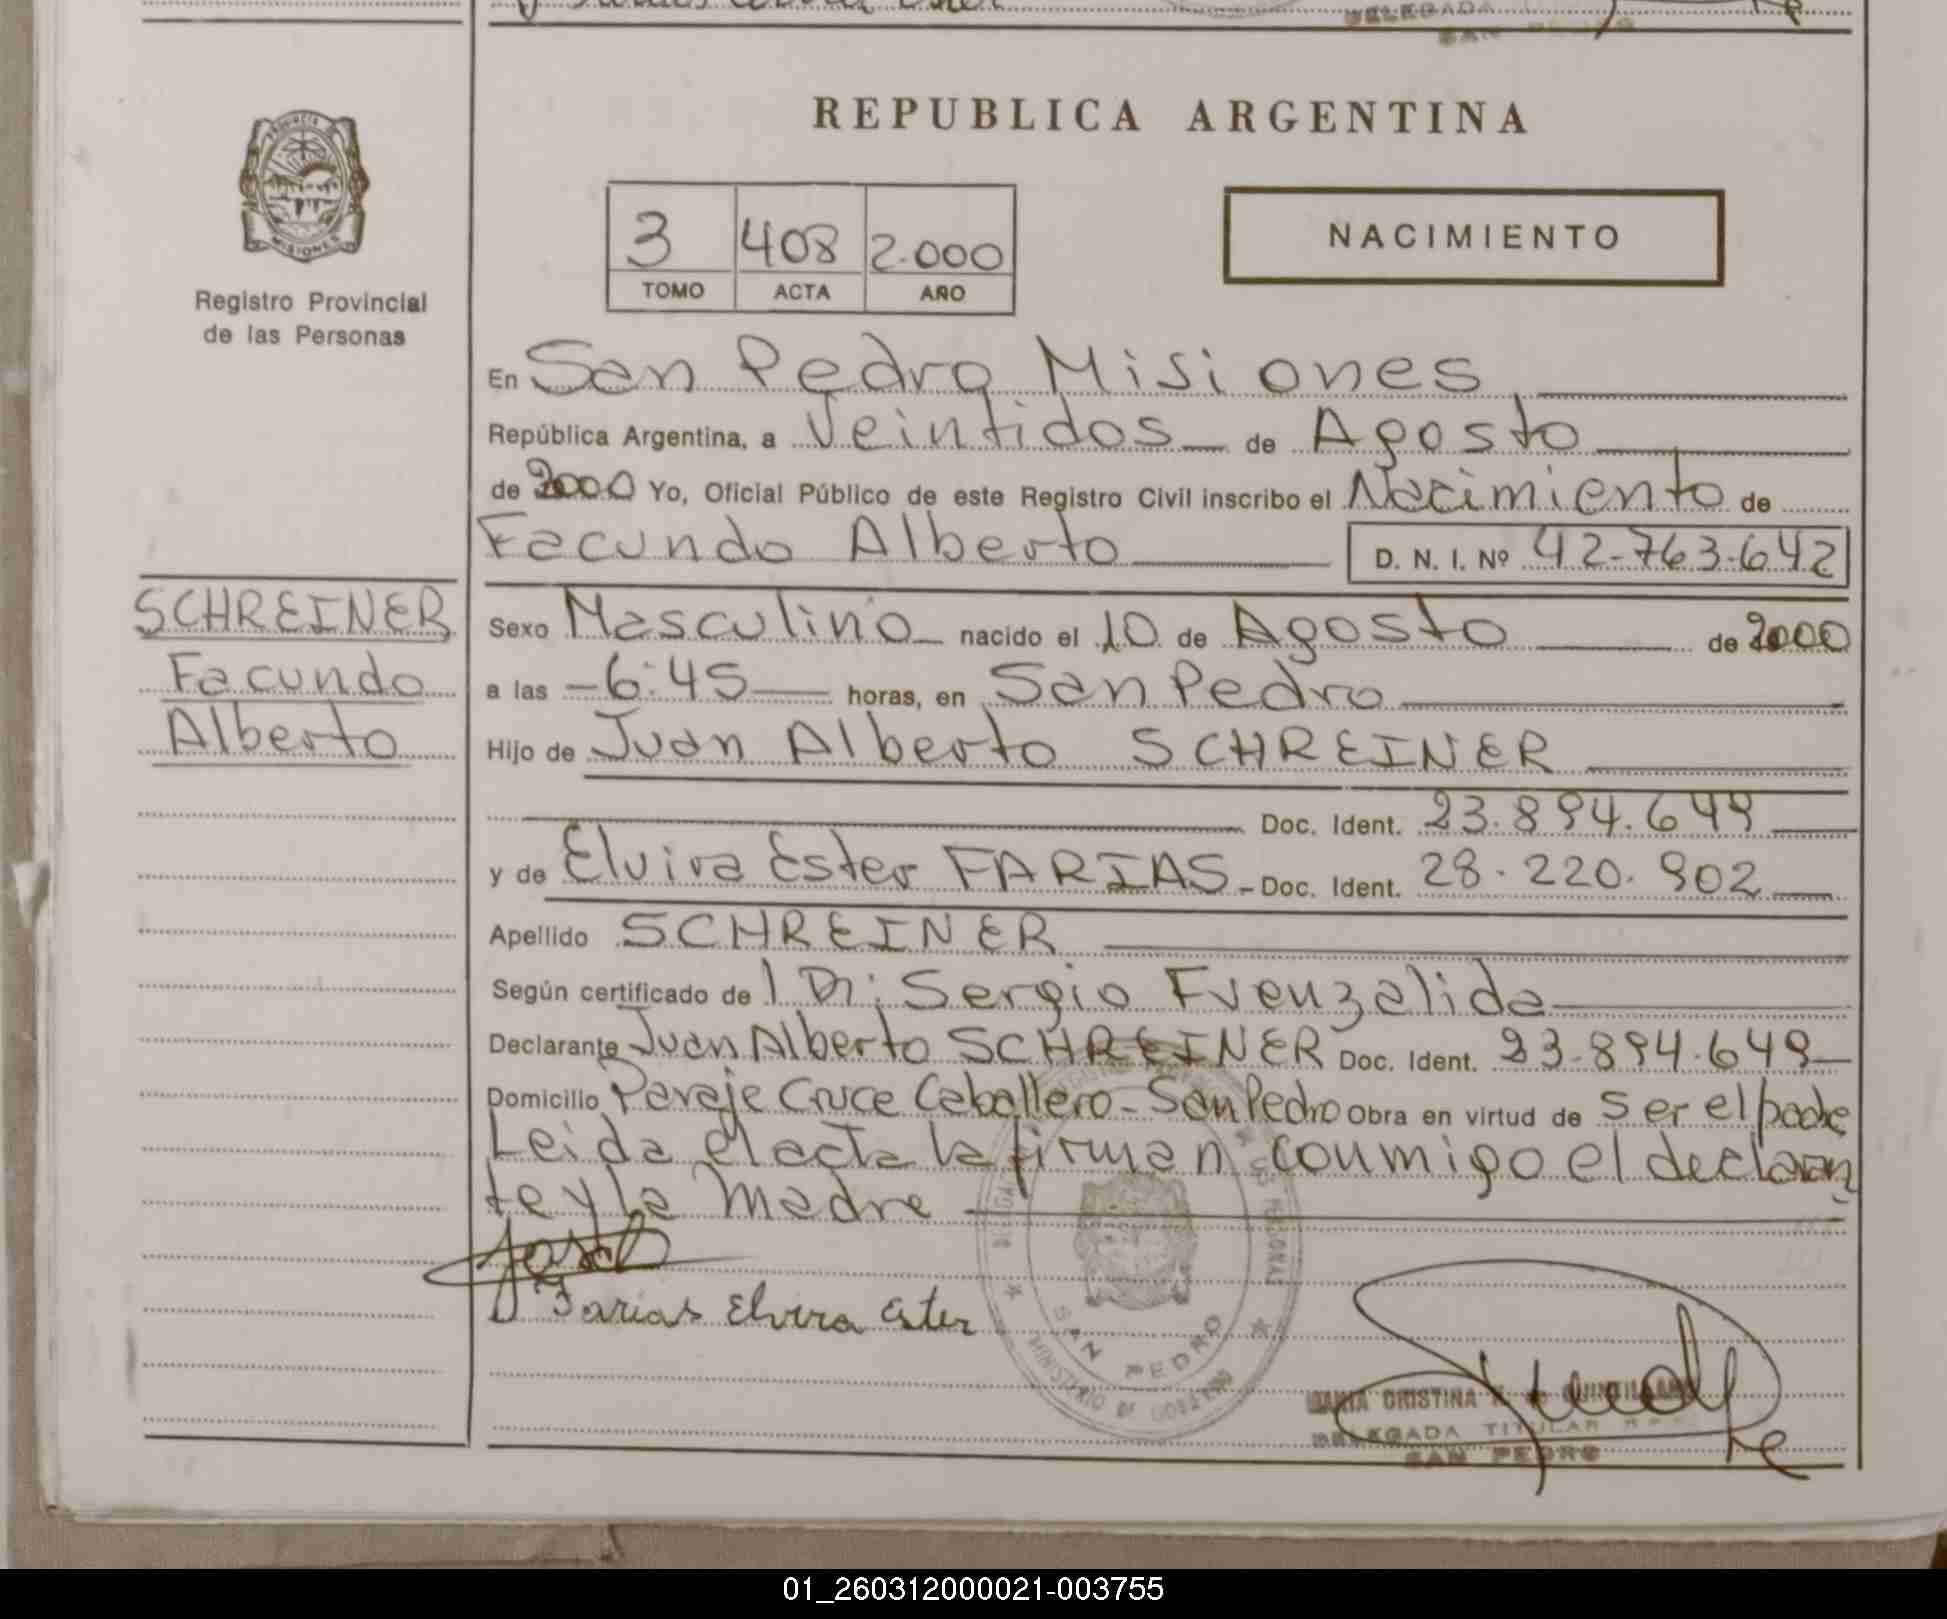 REPUBLICA ARGENTINA
PROVINCIA DE
MISIONES
Registro Provincial
de las Personas
3 408 2.000
TOMO ACTA AÑO
NACIMIENTO
En San Pedro Misiones
República Argentina, a Veintidos de Agosto
de 2000 Yo, Oficial Público de este Registro Civil inscribo el Nacimiento de
Facundo Alberto D. N. I. Nº 42-763.642
SCHREINER
Facundo
Alberto
Sexo Masculino nacido el 10 de Agosto de 2000
a las -6:45 horas, en San Pedro
Hijo de Juan Alberto SCHREINER
Doc. Ident. 23.894.649
y de Elvira Ester FARIAS - Doc. Ident. 28.220.902
Apellido SCHREINER
Según certificado de Sergio Fuenzalida
Declarante Juan Alberto SCHREINER Doc. Ident. 23-894.649
Domicilio Paraje Cruce Caballero - San Pedro Obra en virtud de ser el padre
Leida el acta la firman conmigo el declaran
te y la madre
Farias Elvira Ester
SAN PEDRO
MINISTERIO DE GOBIERNO
MARIA CRISTINA
DELEGADA TITULAR
SAN PEDRO
01_260312000021-003755